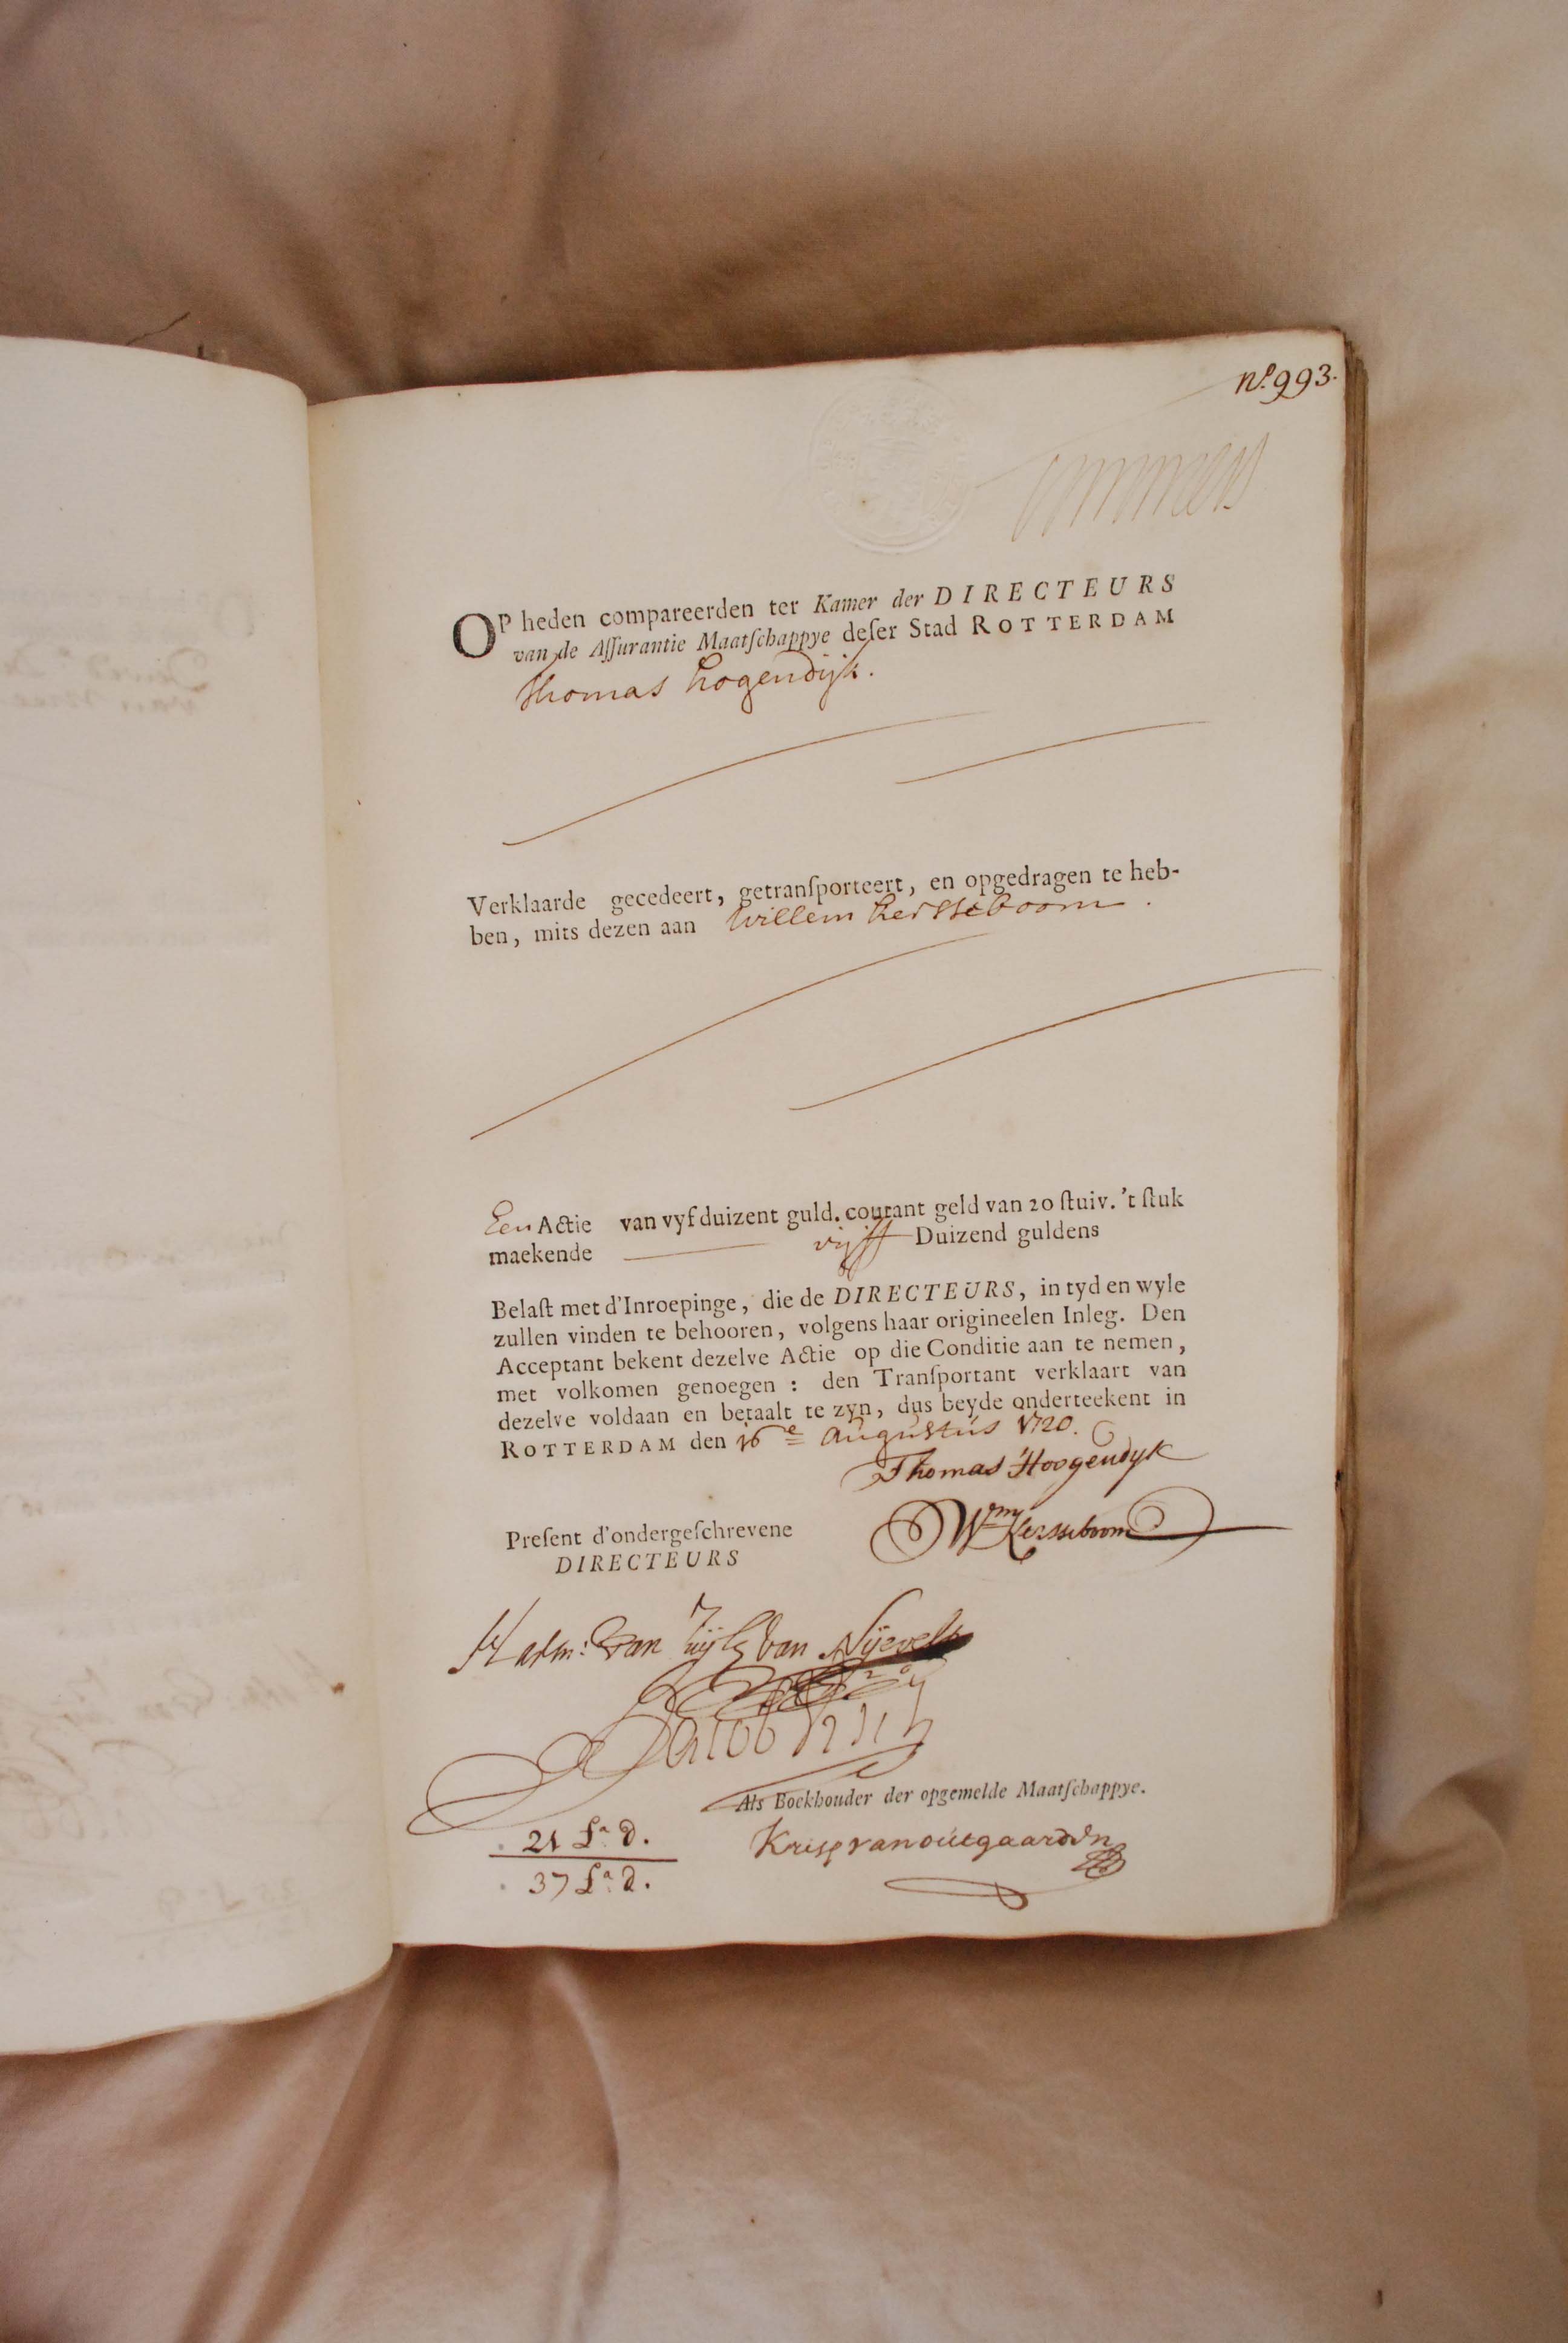 No. 993.
OP heden compareerden ter Kamer der DIRECTEURS
van de Aſſurantie Maatſchappye deſer Stad ROTTERDAM
Thomas hogendijk.
Verklaarde gecedeert, getranſporteert, en opgedragen te heb-
ben, mits dezen aan Willem kersseboom.
Een Actie van vyf duizent guld. courant geld van 20 ſtuiv. 't ſtuk
maekende vijff Duizend guldens
Belaſt met d'Inroepinge, die de DIRECTEURS, in tyd en wyle
zullen vinden te behooren, volgens haar origineelen Inleg. Den
Acceptant bekent dezelve Actie op die Conditie aan te nemen,
met volkomen genoegen : den Tranſportant verklaart van
dezelve voldaan en betaalt te zyn, dus beyde onderteekent in
ROTTERDAM den 16e Augustus 1720.
Thomas Hoogendyk
Wm Kersseboom
Preſent d'ondergeſchrevene
DIRECTEURS
van Zuijlen van Nijevelt
Jacob
Als Boekhouder der opgemelde Maatſchappye.
21 La d.
Krisp van outgaarden
37 La d.